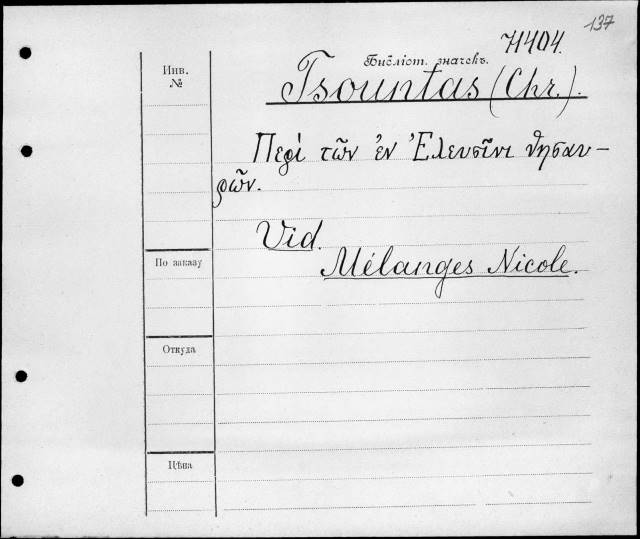 137
71404.
Инв.
№
Библіот. значекъ.
Tsountas (Chr.).
Περί τῶν ἐν Ἐλευσῖνι θησαυ-
ρῶν.
Vid.
Mélanges Nicole.
По заказу
Откуда
Цѣна